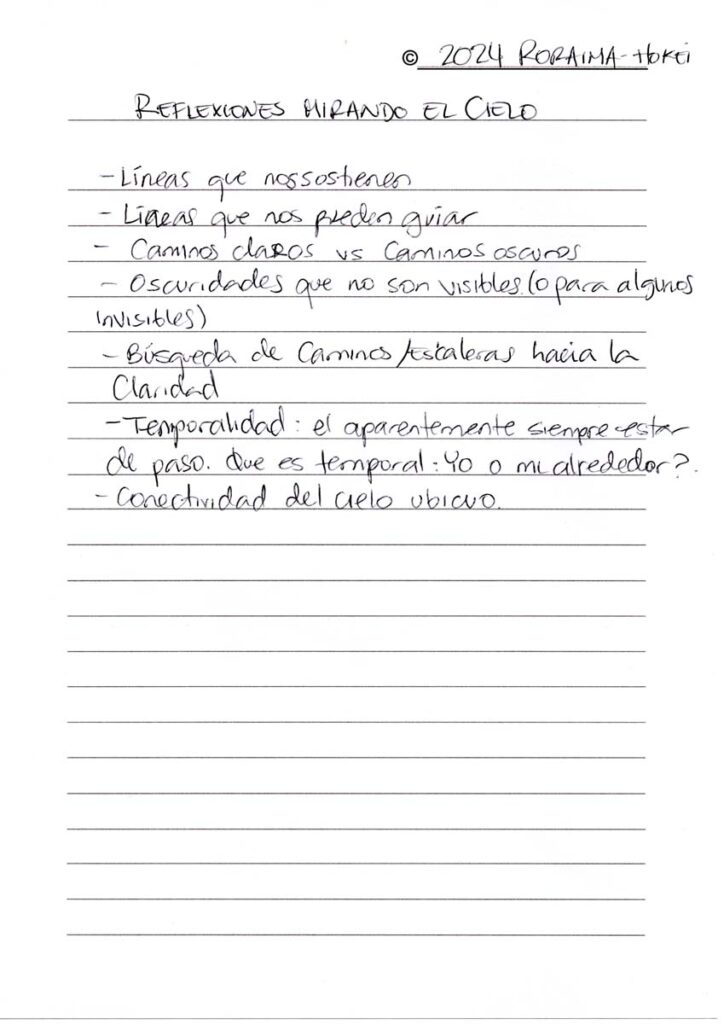 © 2024 RORAIMA-HOKEI
REFLEXIONES MIRANDO EL CIELO
- Líneas que nos sostienen
- Líneas que nos pueden guiar
- Caminos claros vs Caminos oscuros
- Oscuridades que no son visibles (o para algunos
invisibles)
- Búsqueda de Caminos/escaleras hacia la
Claridad
- Temporalidad: el aparentemente siempre estar
de paso. Que es temporal: Yo o mi alrededor?.
- Conectividad del cielo ubicuo.